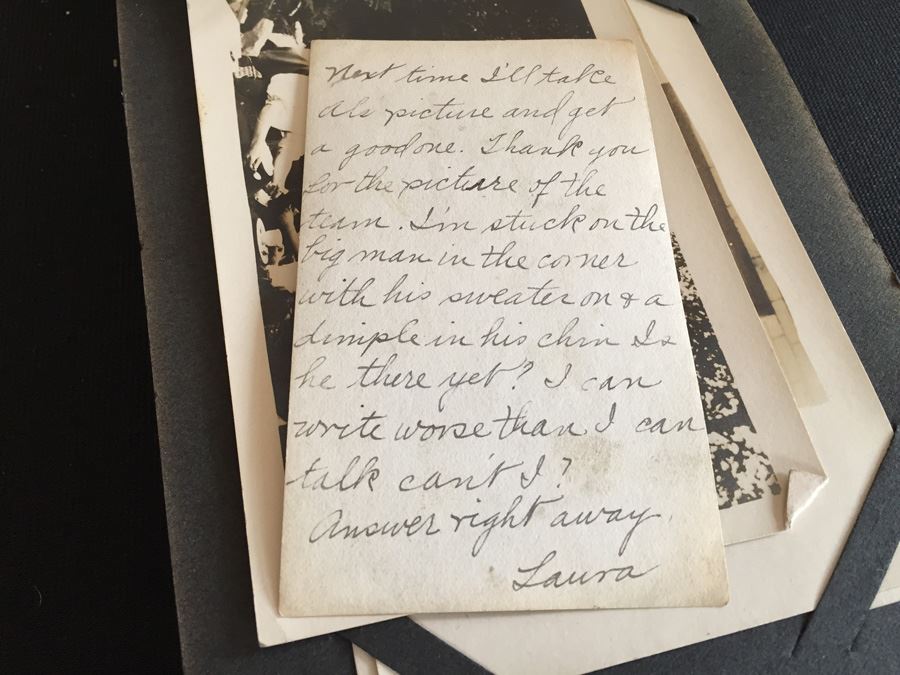 Next time I'll take
Al's picture and get
a good one. Thank you
for the picture of the
team. I'm stuck on the
big man in the corner
with his sweater on & a
dimple in his chin Is
he there yet? I can
write worse than I can
talk can't I?
Answer right away.
Laura